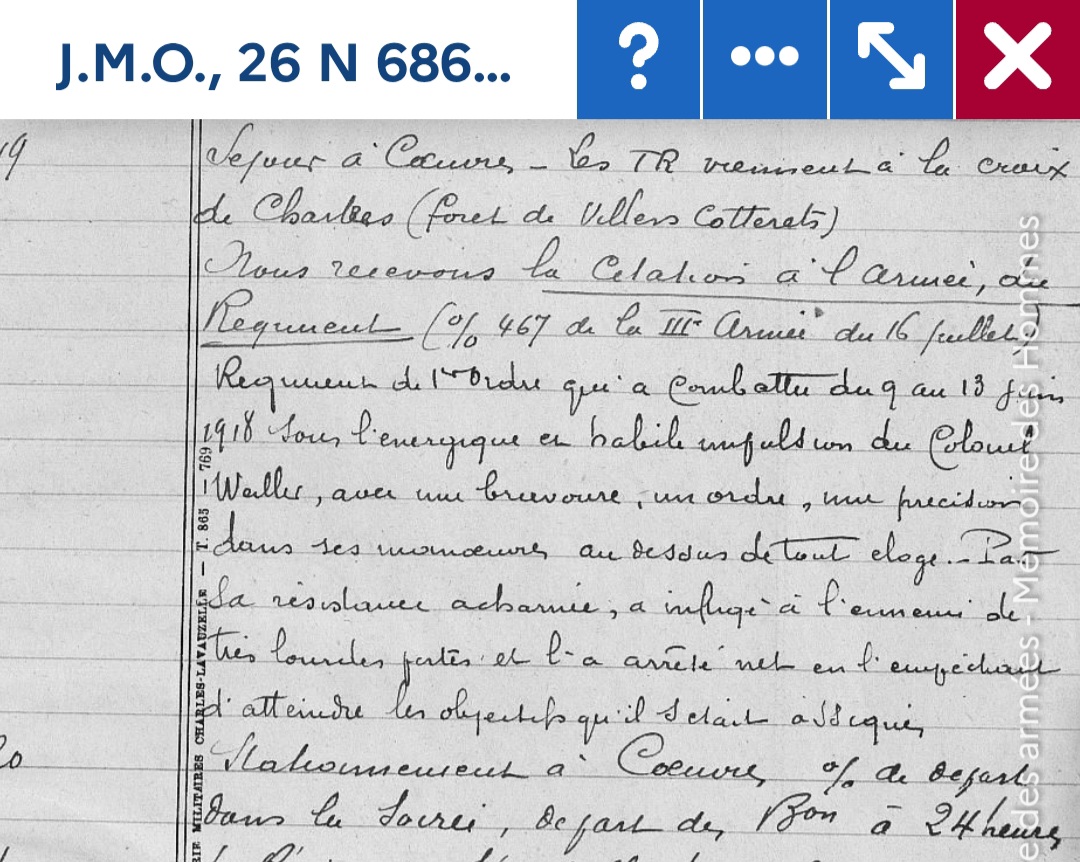 J.M.O., 26 N 686...
19
Sejour à Coeuvres - Les TR viennent à la croix
de Charles (foret de Villers Cotterets)
Nous recevons la Citation à l'Armée, du
Regiment (O/ 467 de la IIIe Armée du 16 juillet.
Regiment de 1er Ordre qui a combattu du 9 au 13 juin
1918 sous l'energique et habile impulsion du Colonel
Weiller, avec une bravoure, un ordre, une precision
dans ses manoeuvres au dessus de tout eloge. - Par
sa résistance acharnée, a infligé à l'ennemi de
très lourdes pertes et l'a arrêté net en l'empéchant
d'atteindre les objectifs qu'il s'etait assignés
20
Stationnement à Coeuvres O/ de depart
dans la soirée, depart des Bon à 24 heures
RIE MILITAIRES CHARLES-LAVAUZELLE — T. 865 1 769
e des armées - Mémoire des Hommes